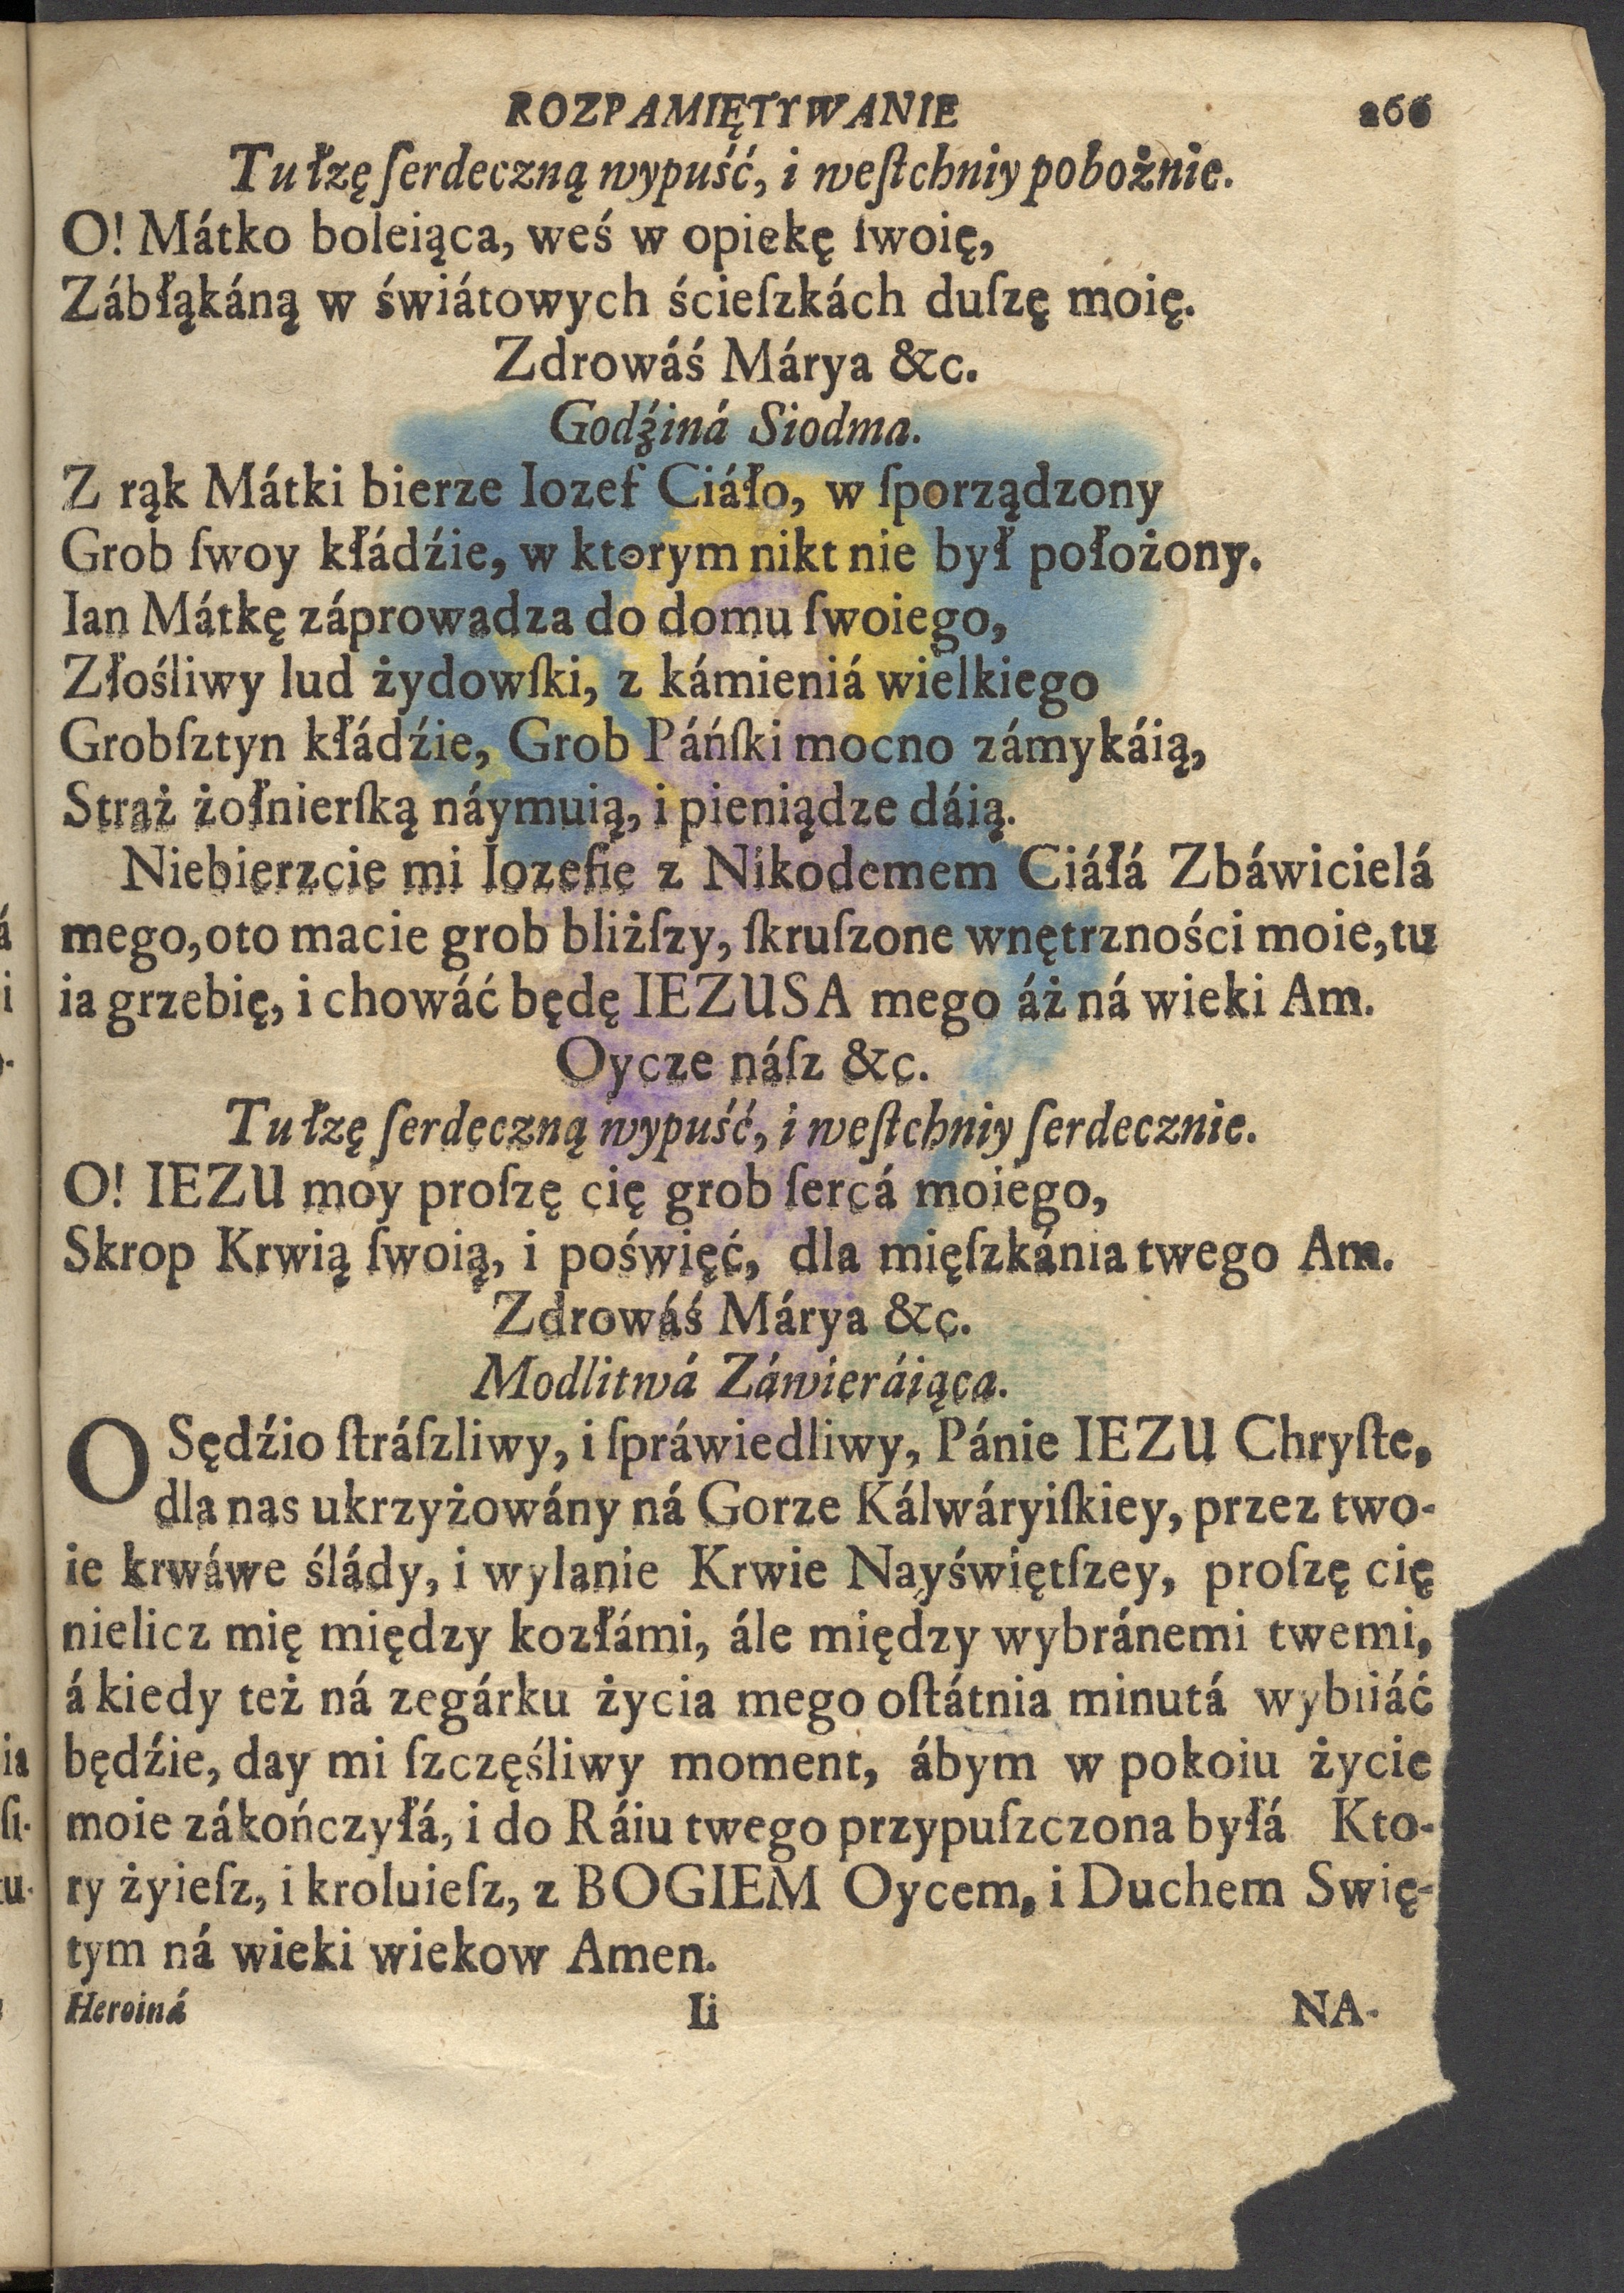 ROZPAMIĘTYWANIE 266
Tu łzę ſerdeczną wypuść, i weſtchniy pobożnie.
O! Mátko boleiąca, weś w opiekę ſwoię,
Zábłąkáną w świátowych ścieſzkách duſzę moię.
Zdrowáś Márya &c.
Godźiná Siodma.
Z rąk Mátki bierze Iozef Ciáło, w ſporządzony
Grob ſwoy kłádźie, w ktorym nikt nie był położony.
Ian Mátkę záprowadza do domu ſwoiego,
Złośliwy lud żydowſki, z kámieniá wielkiego
Grobſztyn kłádźie, Grob Páńſki mocno zámykáią,
Straż żołnierſką náymuią, i pieniądze dáią.
Niebierzcie mi Iozefie z Nikodemem Ciáłá Zbáwicielá
mego, oto macie grob bliżſzy, ſkruſzone wnętrzności moie, tu
ia grzebię, i chowáć będę IEZUSA mego áż ná wieki Am.
Oycze náſz &c.
Tu łzę ſerdeczną wypuść, i weſtchniy ſerdecznie.
O! IEZU moy proſzę cię grob ſercá moiego,
Skrop Krwią ſwoią, i poświęć, dla mięſzkánia twego Am.
Zdrowáś Márya &c.
Modlitwá Záwieráiąca.
O Sędźio ſtráſzliwy, i ſpráwiedliwy, Pánie IEZU Chryſte,
dla nas ukrzyżowány ná Gorze Kálwáryiſkiey, przez two-
ie krwáwe ślády, i wylanie Krwie Nayświętſzey, proſzę cię
nielicz mię między kozłámi, ále między wybránemi twemi,
á kiedy też ná zegárku życia mego oſtátnia minutá wybiiáć
będźie, day mi ſzczęśliwy moment, ábym w pokoiu życie
moie zákończyłá, i do Ráiu twego przypuſzczona byłá Kto-
ry żyieſz, i kroluieſz, z BOGIEM Oycem, i Duchem Swię-
tym ná wieki wiekow Amen.
Heroiná Ii NA-